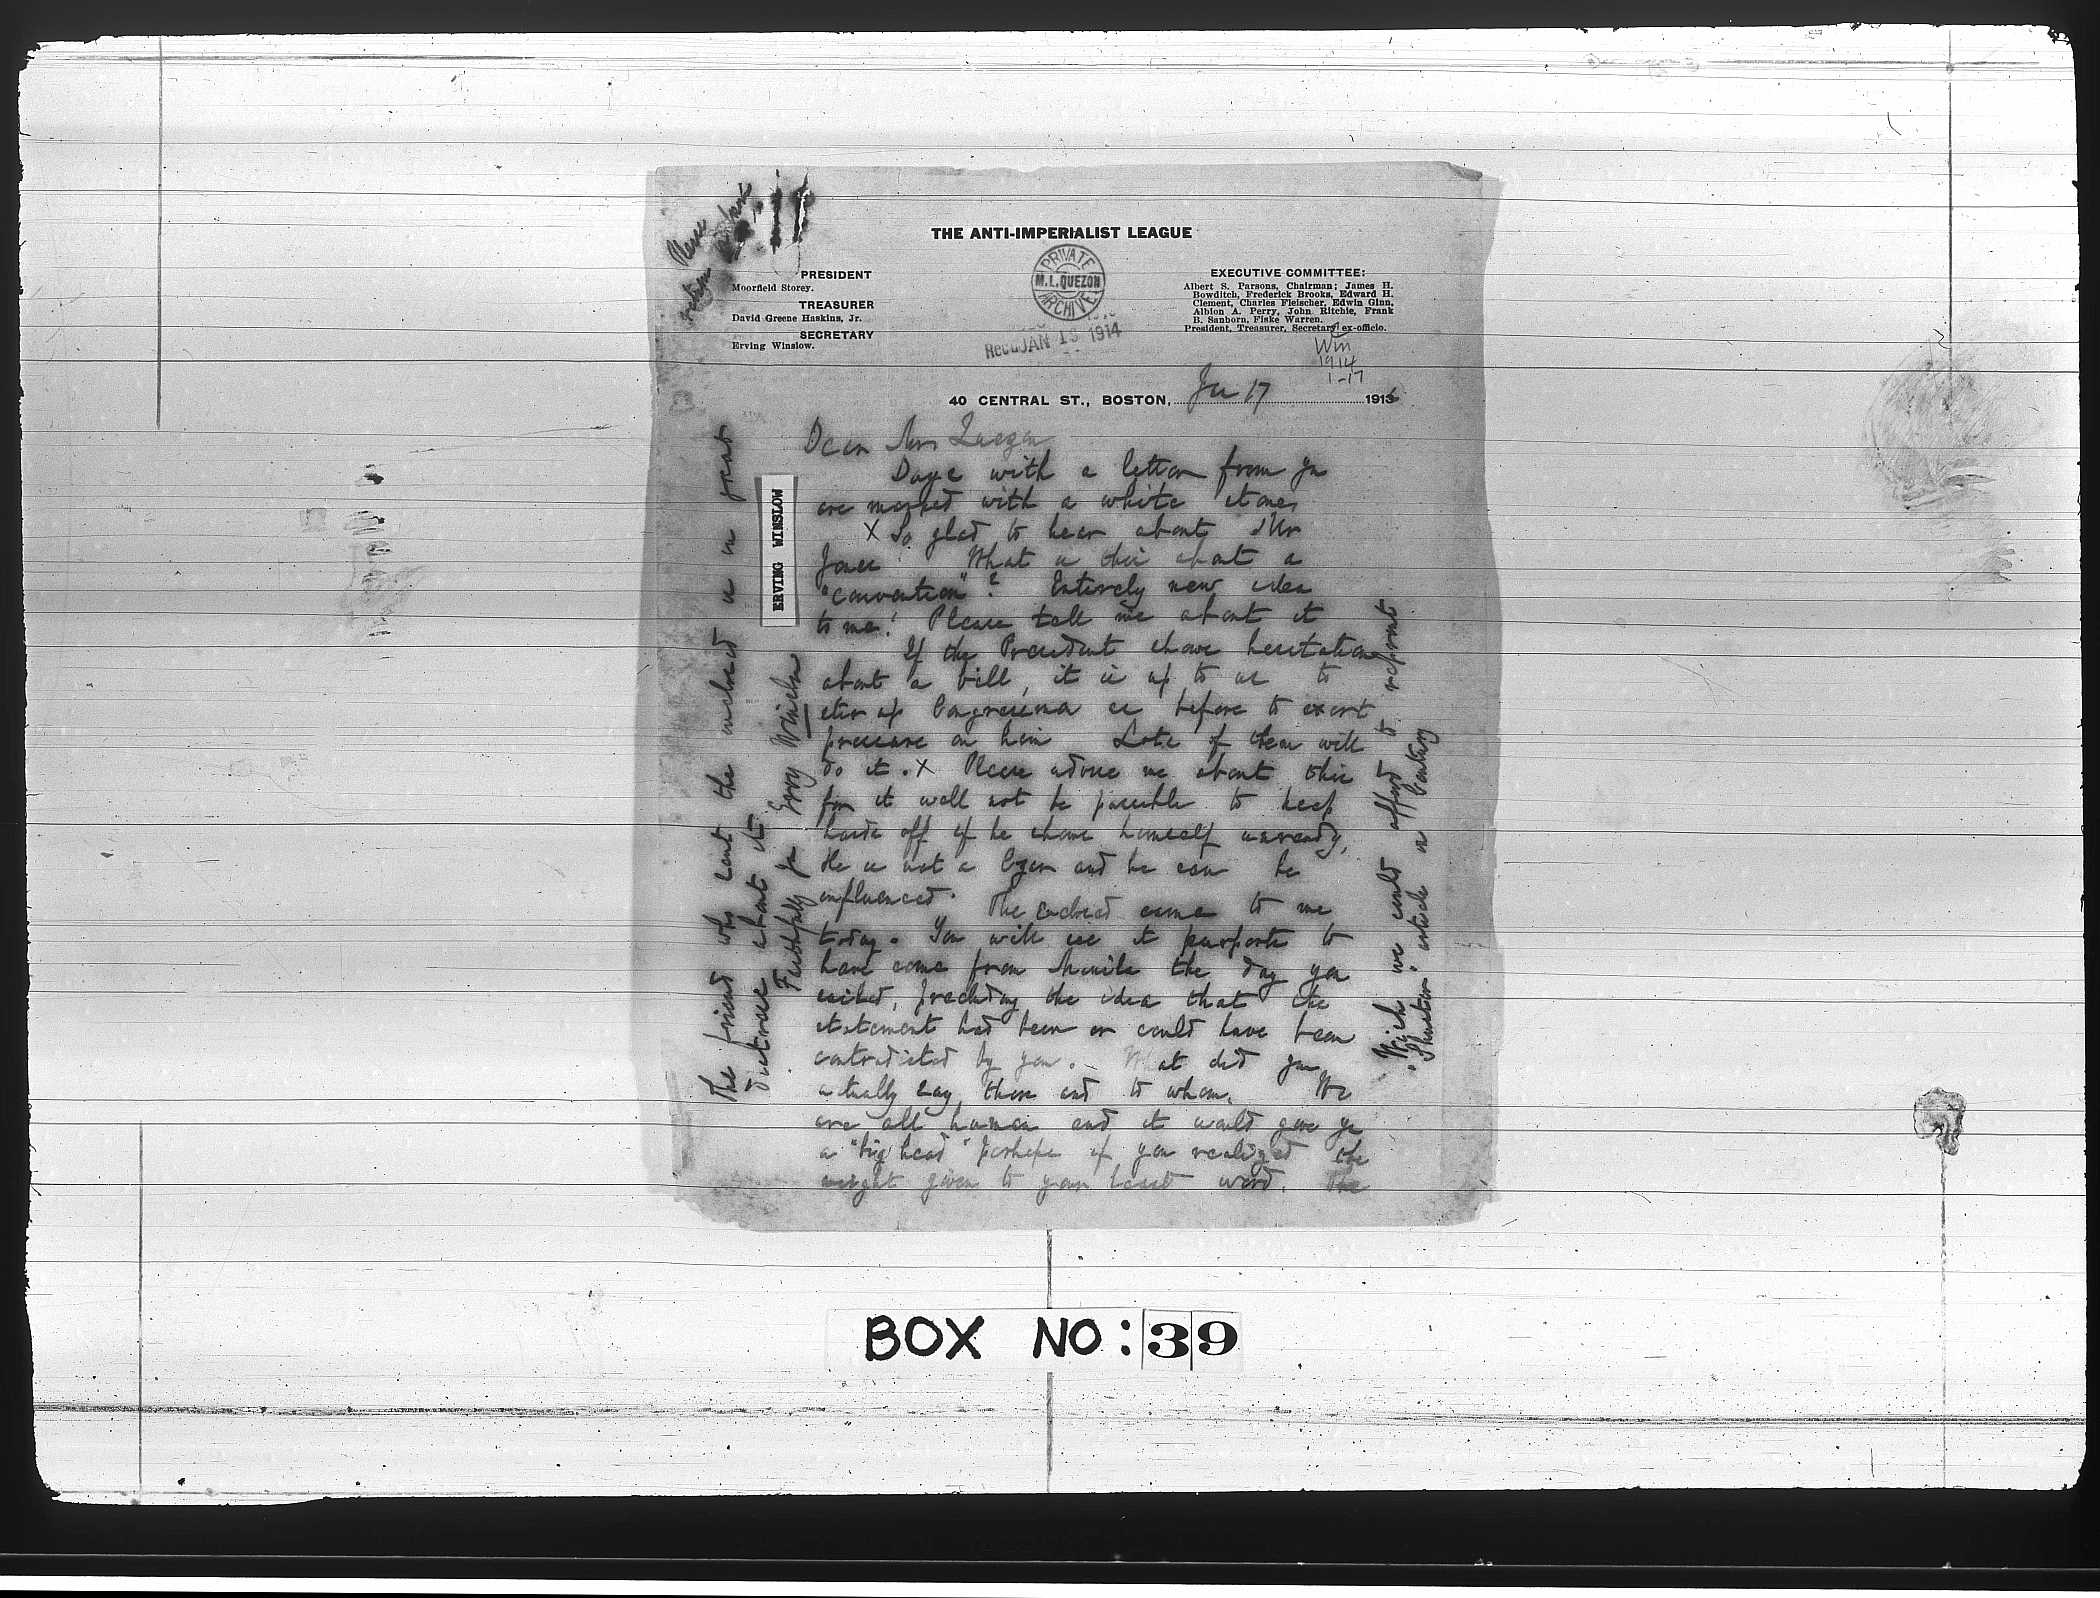 Please
return
THE ANTI-IMPERIALIST LEAGUE
PRESIDENT
Moorfield Storey.
TREASURER
David Greene Haskins, Jr.
SECRETARY
Erving Winslow.
PRIVATE
M. L. QUEZON
ARCHIVE
Rec'd JAN 1 1914
EXECUTIVE COMMITTEE:
Albert S. Parsons, Chairman; James H.
Bowditch, Frederick Brooks, Edward H.
Clement, Charles Fleischer, Edwin Ginn,
Albion A. Perry, John Ritchie, Frank
B. Sanborn, Fiske Warren.
President, Treasurer, Secretary ex-officio.
Win
1914
1-17
40 CENTRAL ST., BOSTON, Jan 17 191
Dear Mr Quezon
Days with a letter from you
are marked with a white stone.
X So glad to hear about Mr
Jones What is this about a
"convention"? Entirely new idea
to me! Please tell me about it
If the President shows hesitation
about a bill, it is up to us to
stir up Congressmen as before to exert
pressure on him Lots of them will
do it. X Please advise me about this
for it will not be possible to keep
hands off if he shows himself unready.
He is not a Czar and he can be
influenced. The enclosed came to me
today. You will see it purports to
have come from Manila the day you
sailed, precluding the idea that the
statement had been or could have been
contradicted by you. What did you
actually say, there and to whom. We
are all human and it would give you
a "big head" perhaps if you realized the
weight given to your least word. The
The friend who sent the enclosed is in great
distress about it
Faithfully yrs Erving Winslow
ERVING WINSLOW
Wish we could afford to reprint
Shuster's article in Century
BOX NO: 39